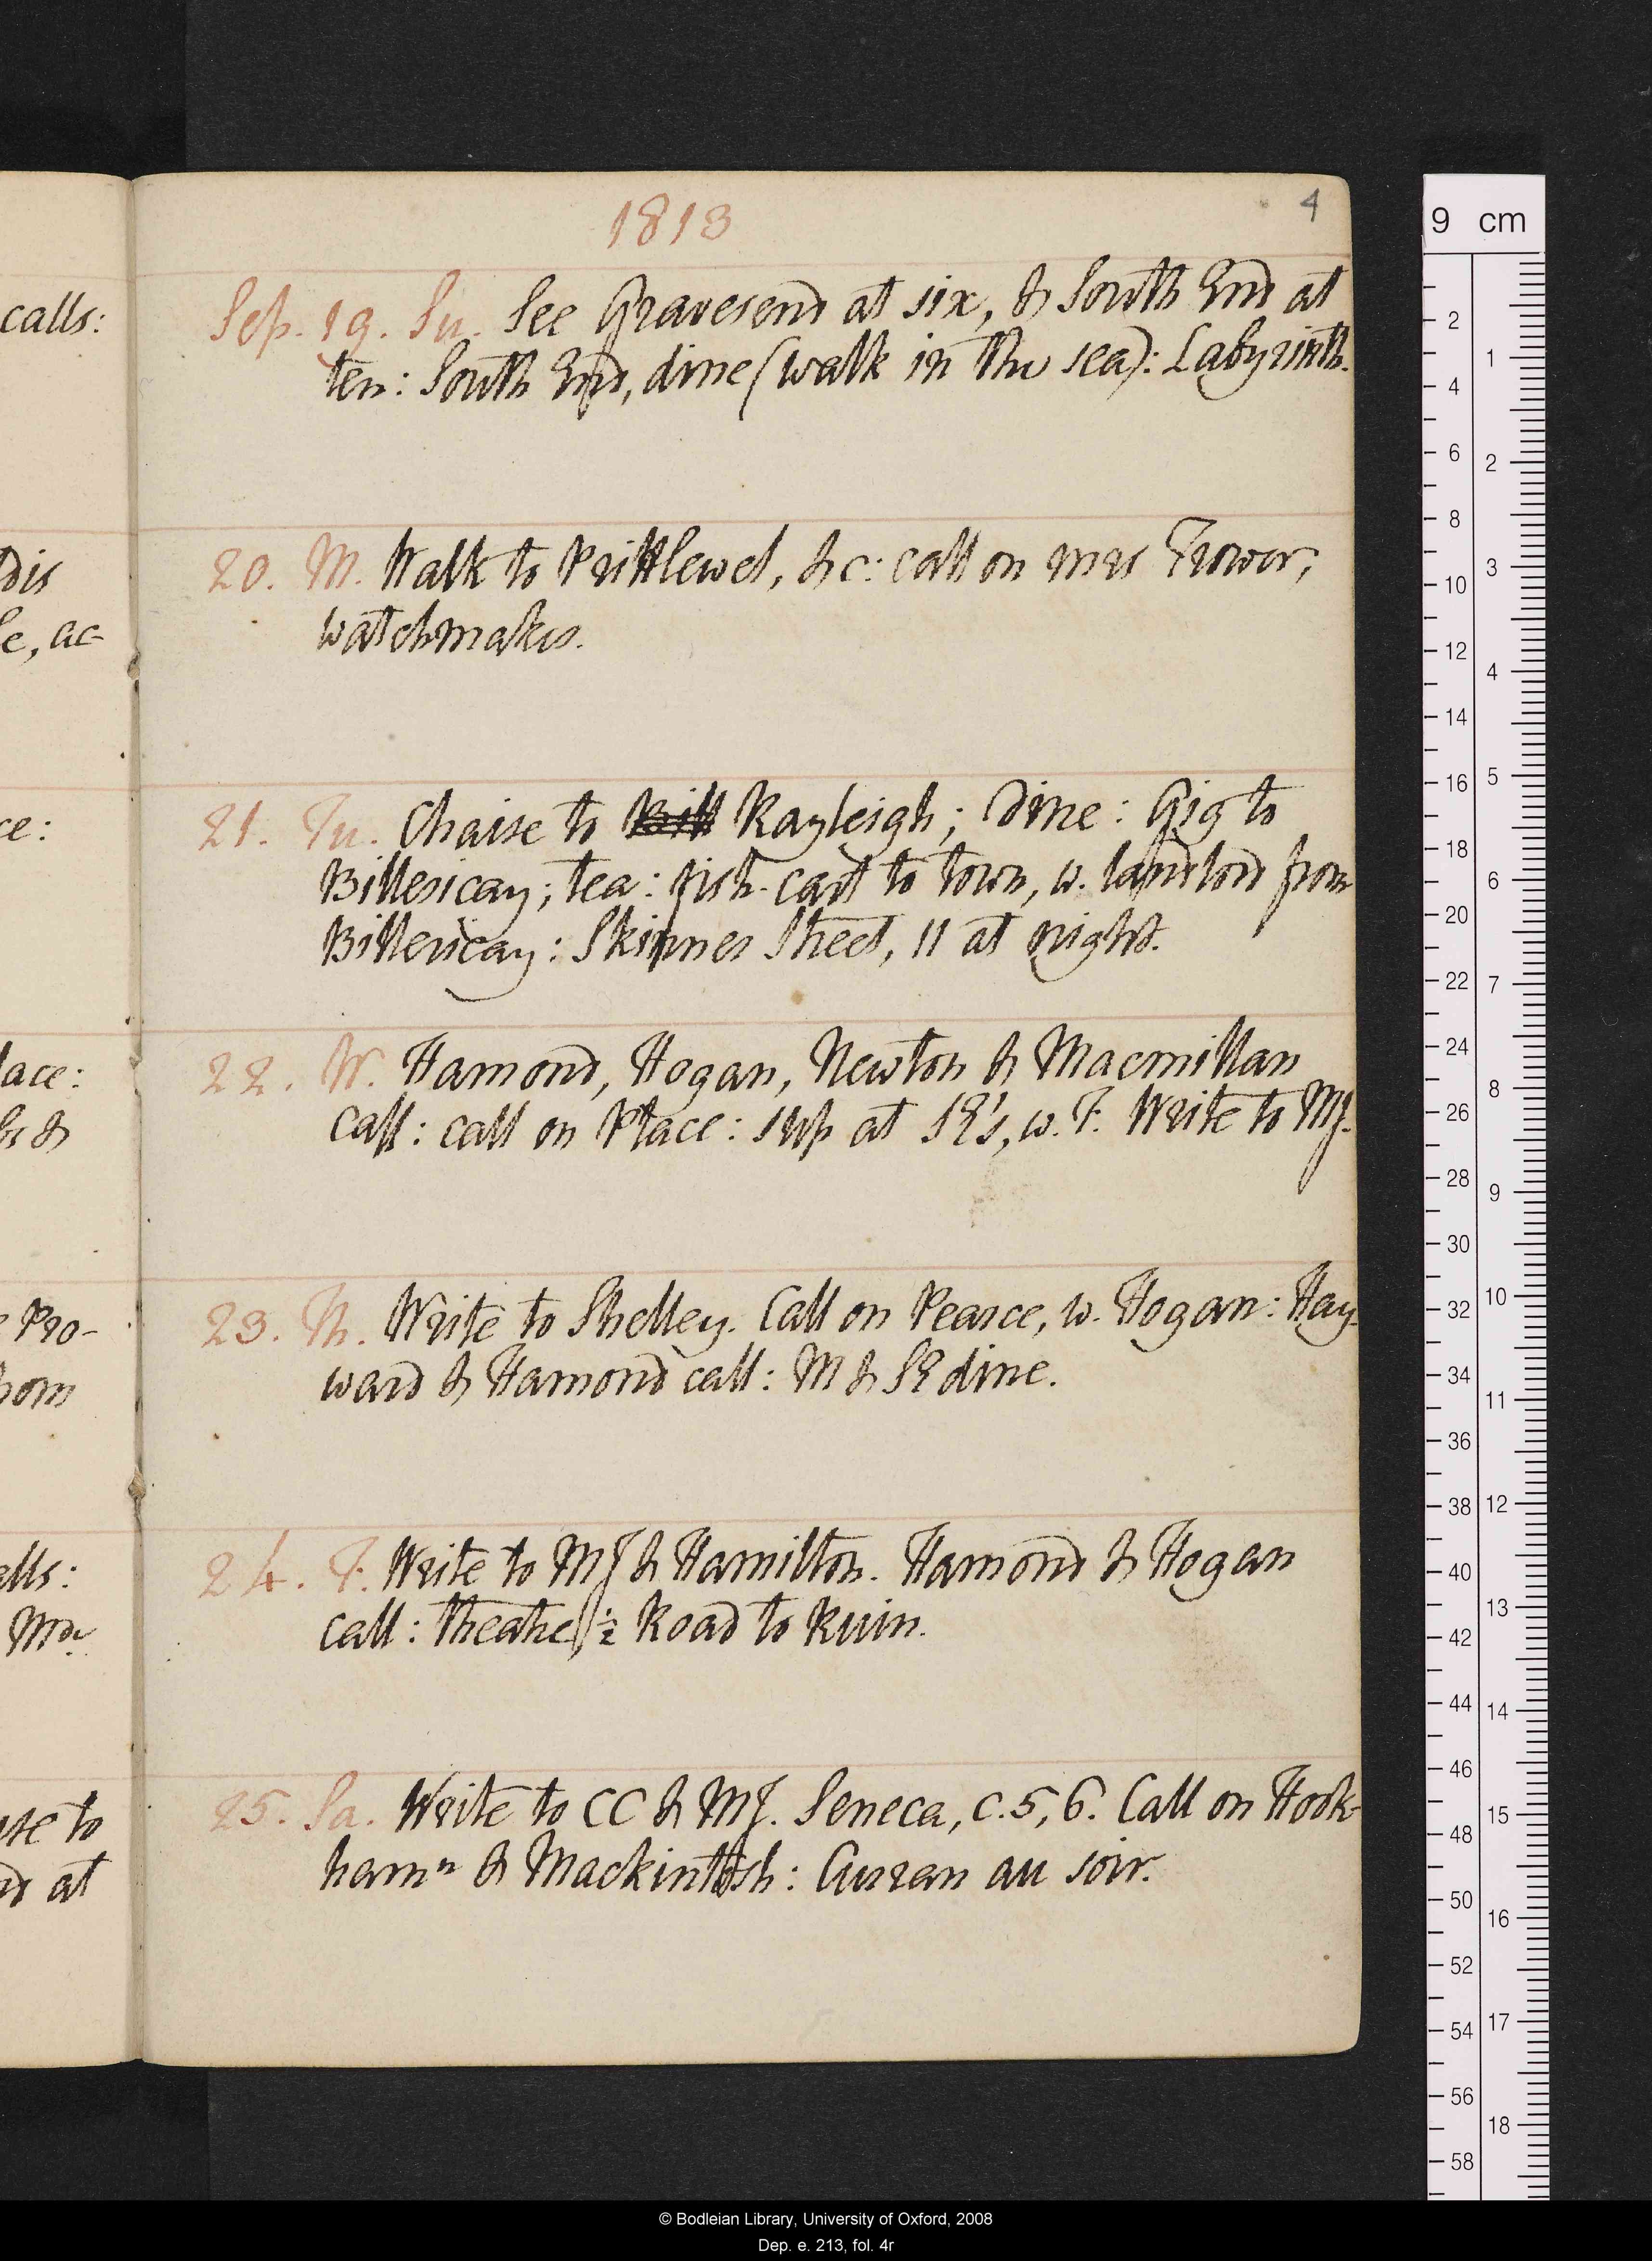 1813
4
Sep. 19. Su. See Gravesend at six, & South End at
ten: South End, dine (walk in the sea): Labyrinth.
20. M. Walk to Prittlewel, &c: call on mrs Trower,
watchmaker.
21. Tu. Chaise to Bill Rayleigh; dine: Gig to
Billericay; tea: fish-cart to town, w. landlord from
Billericay: Skinner Street, 11 at night.
22. W. Hamond, Hogan, Newton & Macmillan
call: call on Place: sup at SE's, w. F. Write to MJ.
23. Th. Write to Shelley. Call on Pearce, w. Hogan: Hay-
ward & Hamond call: M & SE dine.
24. F. Write to MJ & Hamilton. Hamond & Hogan
call: theatre, ½ Road to Ruin.
25. Sa. Write to CC & MJ. Seneca, c. 5, 6. Call on Hook-
ham n & Mackintosh: Curran au soir.
calls:
dis
e, ac-
ce:
lace:
&
Pro-
hom
alls:
Mr
use to
at
9 cm
2
4
6
8
10
12
14
16
18
20
22
24
26
28
30
32
34
36
38
40
42
44
46
48
50
52
54
56
58
1
2
3
4
5
6
7
8
9
10
11
12
13
14
15
16
17
18
© Bodleian Library, University of Oxford, 2008
Dep. e. 213, fol. 4r